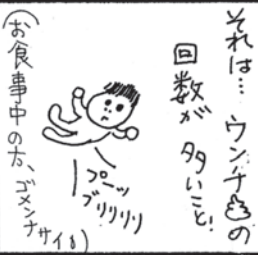 それは…ウンチの
回数が
多いこと!
プーッ
ブリリリリ
(お食事中の方、ゴメンナサイ💧)